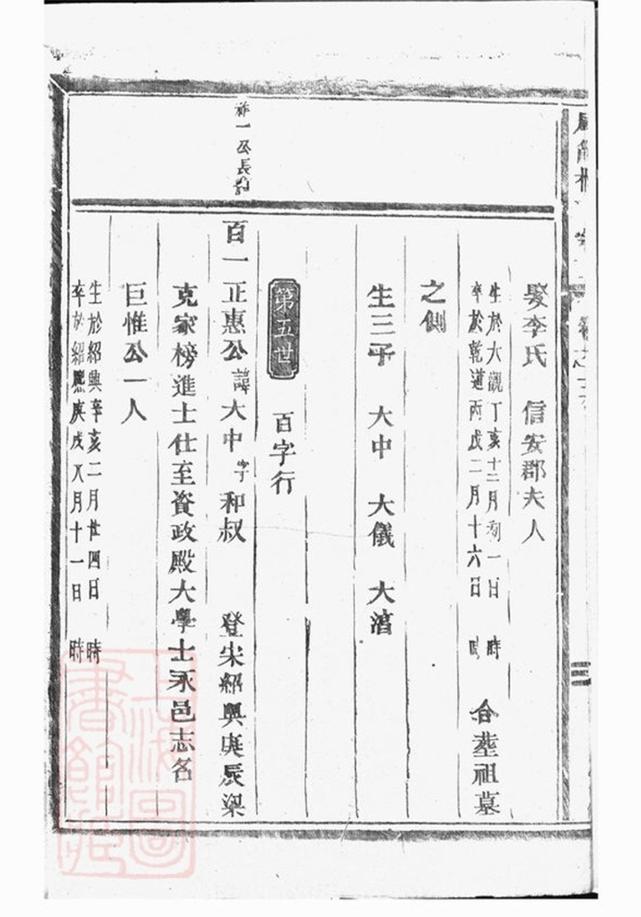 娶李氏 信安郡夫人
生於大觀丁亥十二月初一日 時
卒於乾道丙戌二月十六日 時 合塟祖墓
之側
生三子 大中 大儀 大濇
第五世 百字行
祚一公長子
百一正惠公諱大中字和叔 登宋紹興庚辰梁
克家榜進士仕至資政殿大學士永邑志名
巨惟公一人
生於紹興辛亥二月廿四日 時
卒於紹熙庚戌八月十一日 時
上海圖書館藏